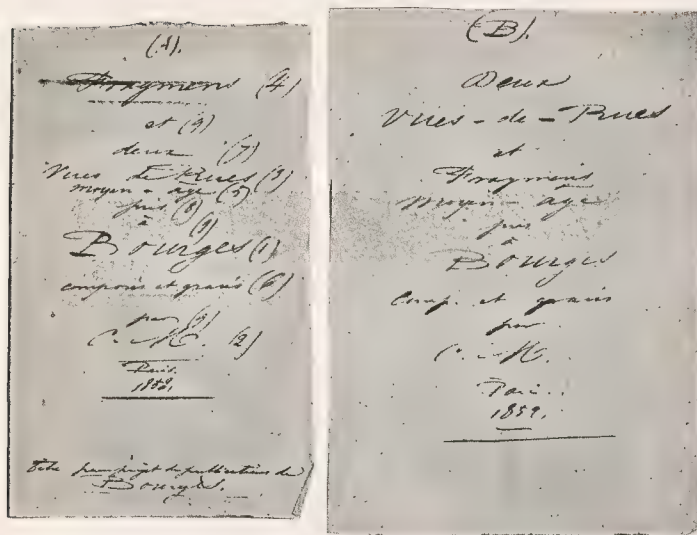 (A).
Fragmens (4)
et (9)
deux (7)
Vues de Rues (3)
moyen-âge (5)
pris (8)
à (9)
Bourges (1)
composés et gravés (6)
par (9)
C. M. (2)
Paris.
1859.
Titre pour projet de publication de
Bourges.
(B).
Deux
Vues-de-Rues
et
Fragmens
moyen âge
pris
à
Bourges
Comp. et gravés
par
C. M.
Paris.
1859.